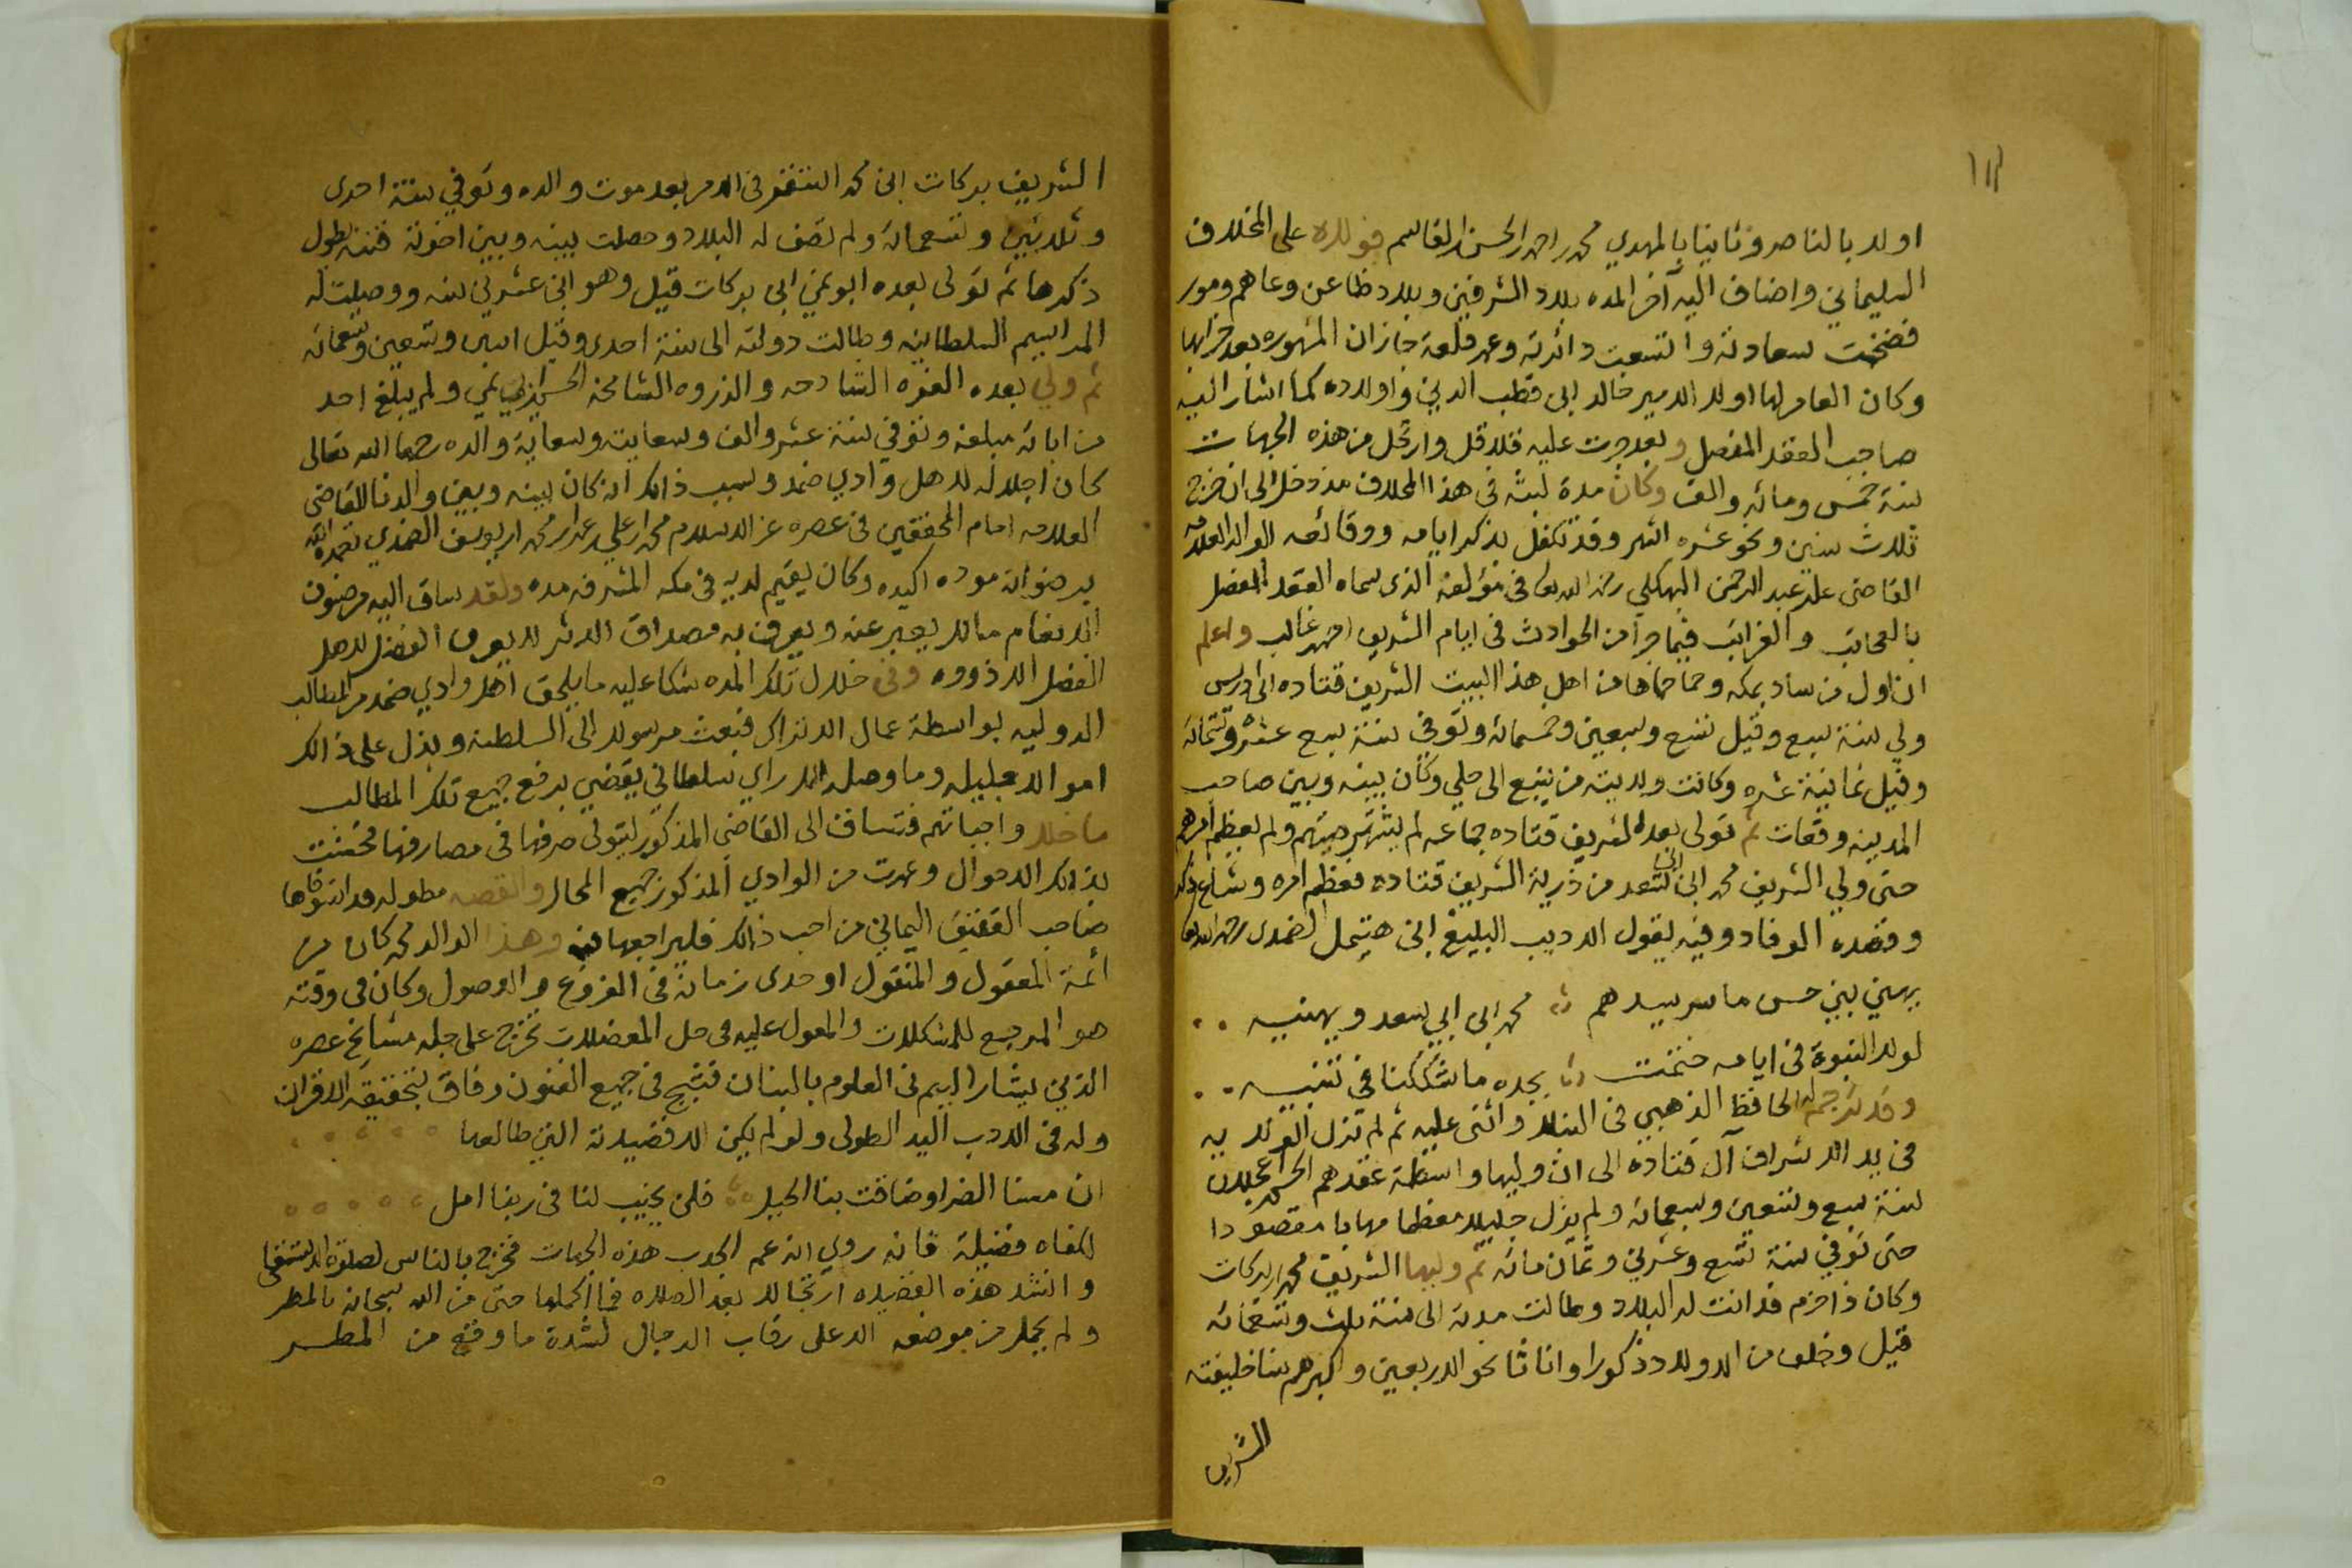 ١١٢
اولا بالناصر وثانيا بالمهدي محمد بن احمد بن الحسن بن القاسم فولاه على المخلاف
السليماني واضاف اليه آخر المده بلاد الشرفين وبلاد ظاعن وعاهم ومور
فضخمت سعادته واتسعت دائرته وعمر قلعة جازان المشهوره بعد خرابها
وكان العامر لها اولا الامير خالد ابن قطب الدين واولاده كما اشار اليه
صاحب العقد المفصل وبعد جرت عليه قلاقل وارتحل من هذه الجهات
سنة خمس ومائه والف وكان مدة لبثه في هذا المخلاف مذ دخل الى ان خرج
ثلاث سنين ونحو عشره اشهر وقد تكفل بذكر ايامه ووقائعه الوالد العلامه
القاضي علي بن عبد الرحمن البهكلي رحمه الله تعالى في مؤلفه الذي سماه العقد المفصل
بالعجائب والغرائب فيما جرا من الحوادث في ايام الشريف احمد بن غالب واعلم
ان اول من ساد بمكه وحما حماها من اهل هذا البيت الشريف قتاده ابن ادريس
ولي سنة سبع وقيل تسع وتسعين وخمسمائه وتوفي سنة سبع عشره وستمائه
وقيل ثمانية عشره وكانت ولايته من ينبع الى حلي وكان بينه وبين صاحب
المدينه وقعات ثم تولى بعد الشريف قتاده جماعه لم يشتهر صيتهم ولم يعظم امرهم
حتى ولي الشريف محمد ابن ابي سعد من ذرية الشريف قتاده فعظم امره وشاع ذكره
وقصده الوفاد وفيه يقول الاديب البليغ ابن هتيمل الضمدي رحمه الله تعالى
يهني بني حسن ما سر سيدهم محمد ابن ابي سعد ويهنيه
لولا النبوة في ايامه ختمت بجده ما شككنا في تنبيه
وقد ترجم له الحافظ الذهبي في النبلا واثنى عليه ثم لم تزل الولايه
في يد الاشراف آل قتاده الى ان وليها واسطة عقدهم الحسن بن عجلان
سنة سبع وتسعين وسبعمائه ولم يزل جليلا معظما مهابا مقصودا
حتى توفي سنة تسع وعشرين وثمان مائه ثم وليها الشريف محمد بن بركات
وكان ذا حزم فدانت له البلاد وطالت مدته الى سنة ثلاث وتسعمائه
قيل وخلف من الاولاد ذكورا واناثا نحو الاربعين واكبرهم سنا خليفته
الشريف
الشريف بركات ابن محمد استقر في الامر بعد موت والده وتوفي سنة احدى
وثلاثين وتسعمائه ولم تصف له البلاد وحصلت بينه وبين اخوته فتنه يطول
ذكرها ثم تولى بعده ابو نمي ابن بركات قيل وهو ابن عشرين سنه ووصلت له
المراسيم السلطانيه وطالت دولته الى سنة احدى وقيل اثنين وتسعين وتسعمائه
ثم ولي بعده الغره الشادخه والذروه الشامخه الحسن بن ابي نمي ولم يبلغ احد
من ابائه مبلغه وتوفي سنة عشر والف وبسعايته وسعاية والده رحمهما الله تعالى
كان اجلاله لاهل وادي ضمد وسبب ذالك انه كان بينه وبين والدنا القاضي
العلامه امام المحققين في عصره عز الاسلام محمد بن علي بن عمر بن محمد بن يوسف الضمدي تغمده الله
برضوانه موده اكيده وكان يقيم لديه في مكه المشرفه مده ولقد ساق اليه من صنوف
الانعام ما لا يعبر عنه ويعرف به مصداق الاثر لا يعرف الفضل لاهل
الفضل الا ذووه وفي خلال تلك المده شكا عليه ما يلحق اهل وادي ضمد من المطالب
الدوليه بواسطة عمال الاتراك فبعث مرسولا الى السلطنه وبذل على ذالك
اموالا جليله وما وصله الا راي سلطاني يقضي برفع جميع تلك المطالب
ما خلا واجباتهم فتساق الى القاضي المذكور ليتولى صرفها في مصارفها فحسنت
بذالك الاحوال وعمرت من الوادي المذكور جميع المحال والقصه مطوله قد استوفاها
صاحب العقيق اليماني من احب ذالك فليراجعها منه وهذا الوالد محمد كان من
ائمة المعقول والمنقول اوحدى زمانه في الفروع والاصول وكان في وقته
هو المرجع للمشكلات والمعول عليه في حل المعضلات تخرج على جله مشايخ عصره
الذين يشار اليهم في العلوم بالبنان فتبحر في جميع الفنون وفاق بتحقيقه الاقران
وله في الادب اليد الطولى ولو لم يكن الا قصيدته التي طالعها
ان مسنا الضر او ضاقت بنا الحيل فلن يخيب لنا في ربنا امل
لكفاه فضيلة فانه روي انه عم الجدب هذه الجهات فخرج بالناس لصلوة الاستسقا
وانشد هذه القصيده ارتجالا بعد الصلاه فما اكملها حتى من الله سبحانه بالمطر
ولم يحمل من موضعه الا على رقاب الرجال لشدة ما وقع من المطر